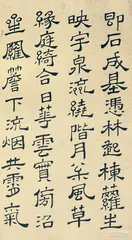 即石成基憑林起棟蘿生
映宇泉流繞階月枀風草
緣庭綺合日華雲實傍沼
星羅簷下流烟共霄氣